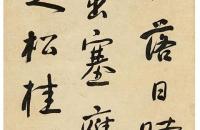 落日時
出塞雁
之松桂